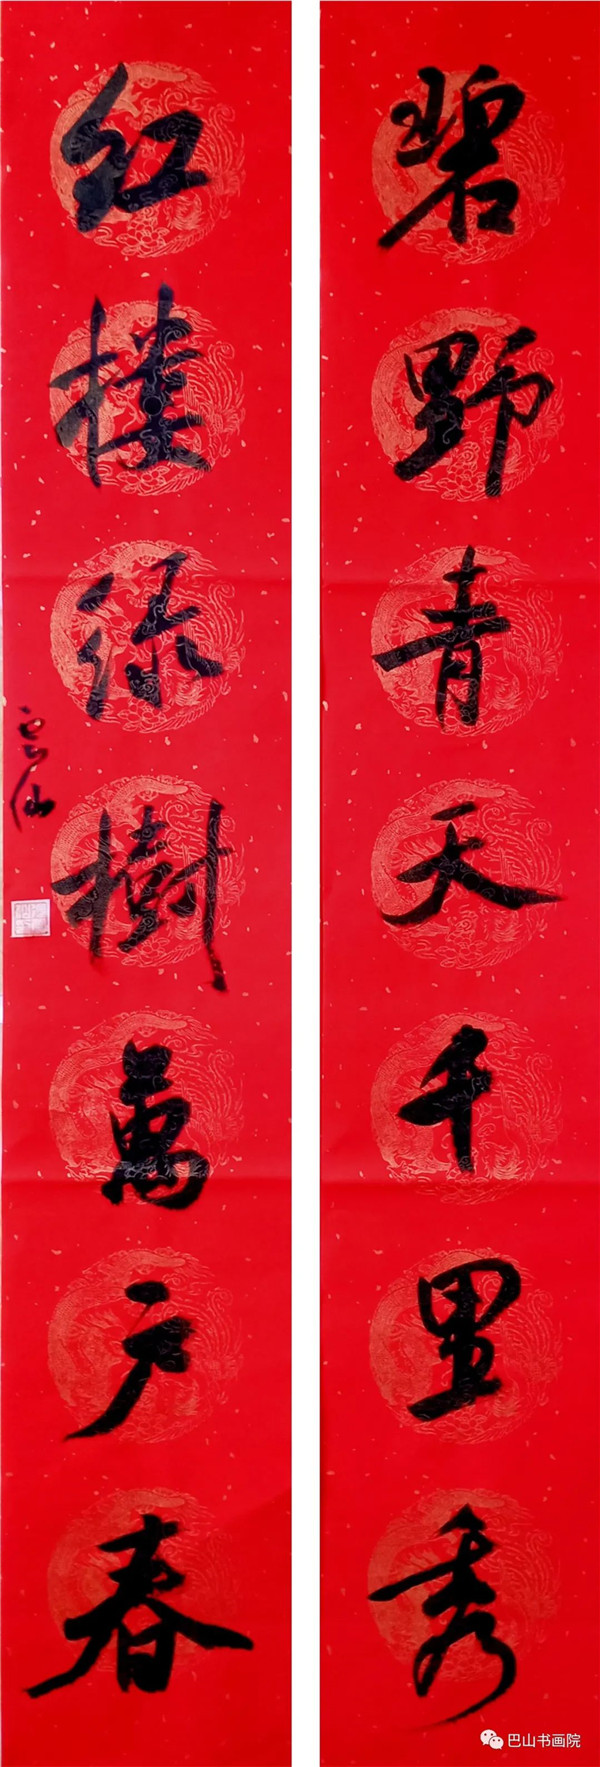 碧野青天千里秀
红楼绿樹萬戶春
巴山书画院